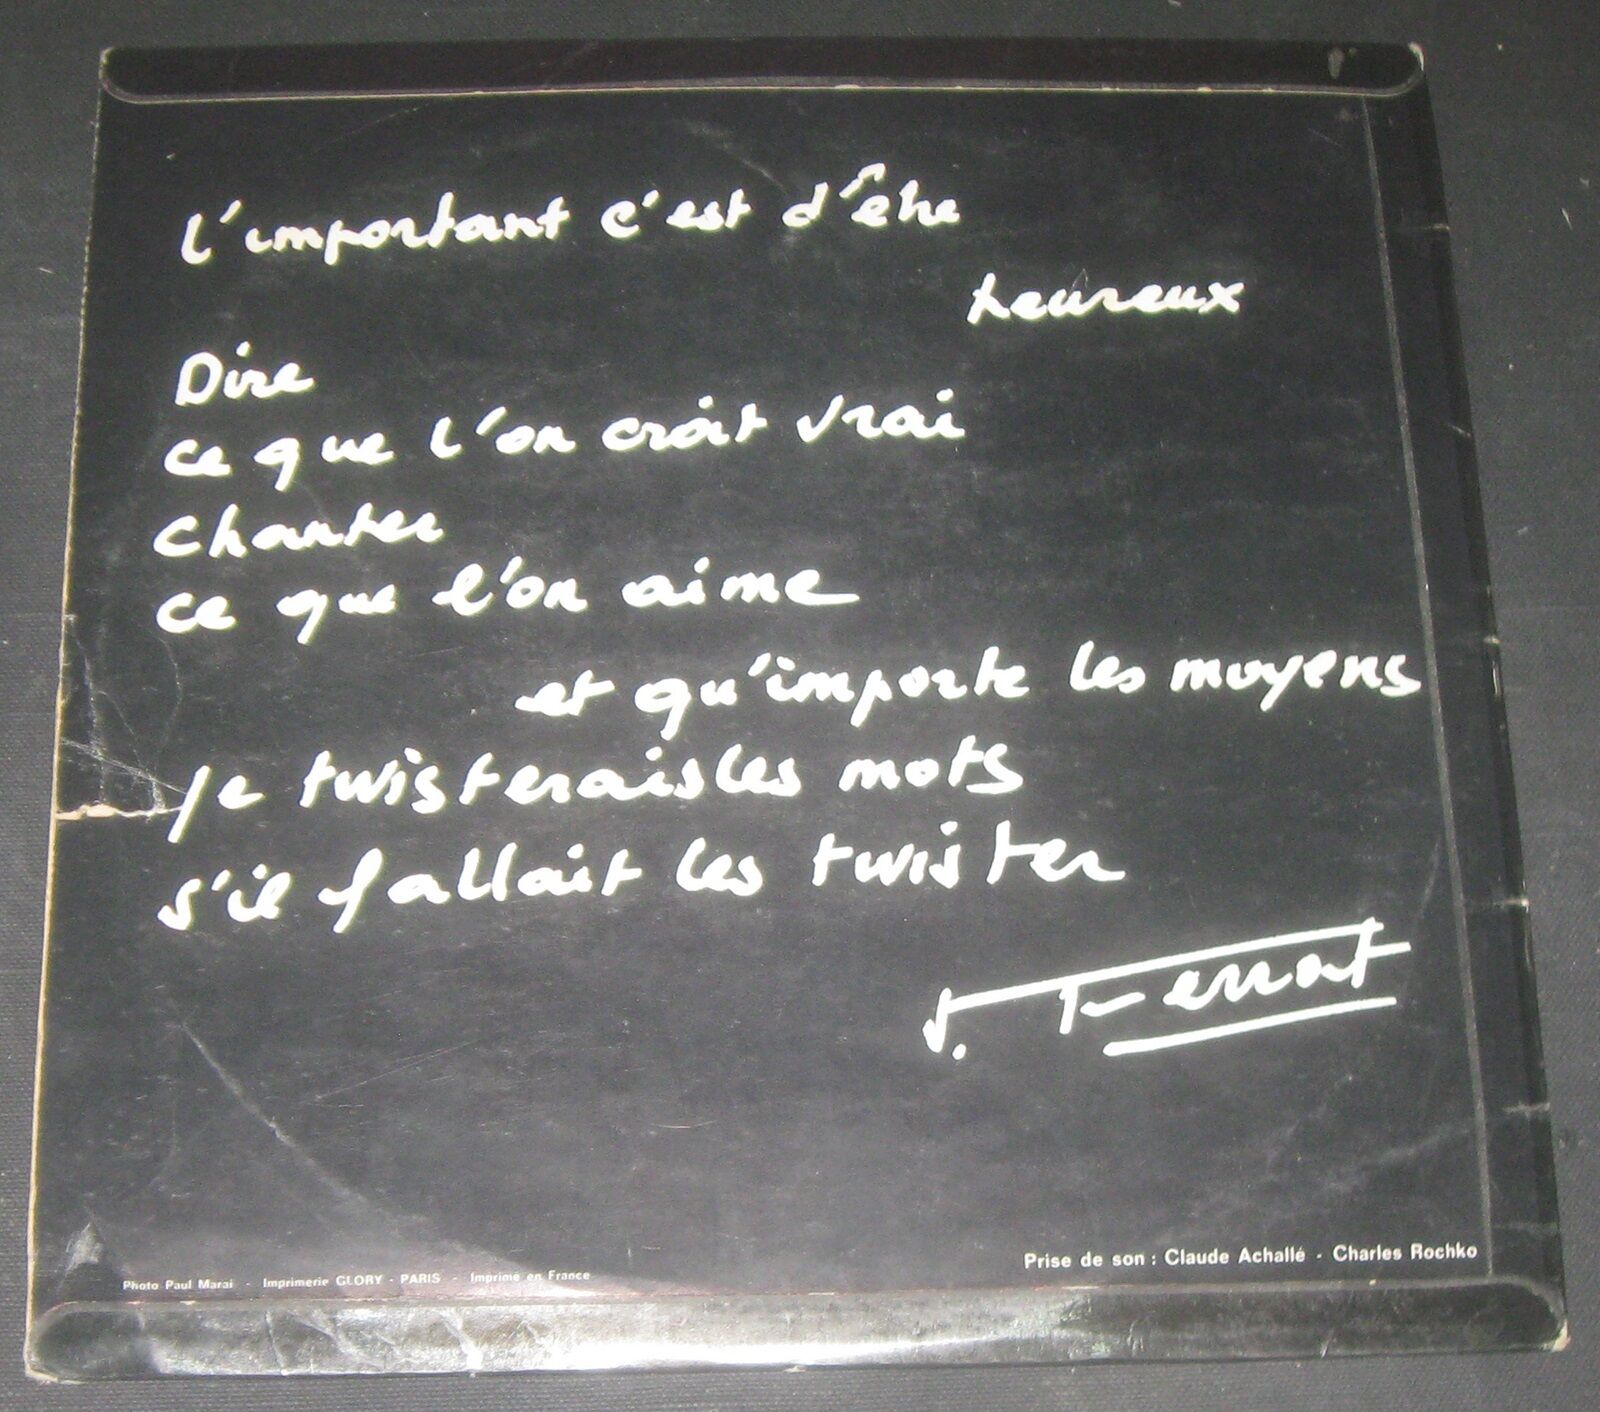 L'important c'est d'être
heureux
Dire
ce que l'on croit vrai
Chanter
ce que l'on aime
et qu'importe les moyens
Je twisterais les mots
s'il fallait les twister
J. Ferrat
Prise de son : Claude Achallé - Charles Rochko
Photo Paul Marai - Imprimerie GLORY - PARIS - Imprimé en France